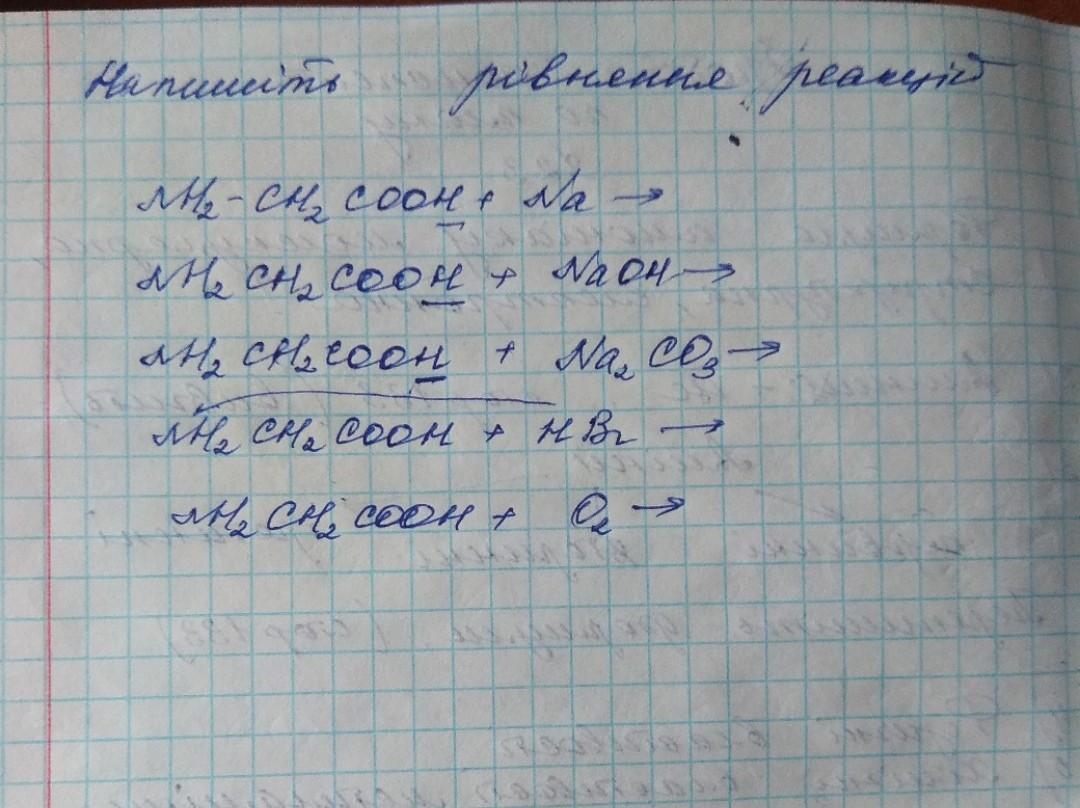 Напишіть рівняння реакцій
NH₂-CH₂COOH + Na →
NH₂CH₂COOH + NaOH →
NH₂CH₂COOH + Na₂CO₃ →
NH₂CH₂COOH + HBr →
NH₂CH₂COOH + O₂ →